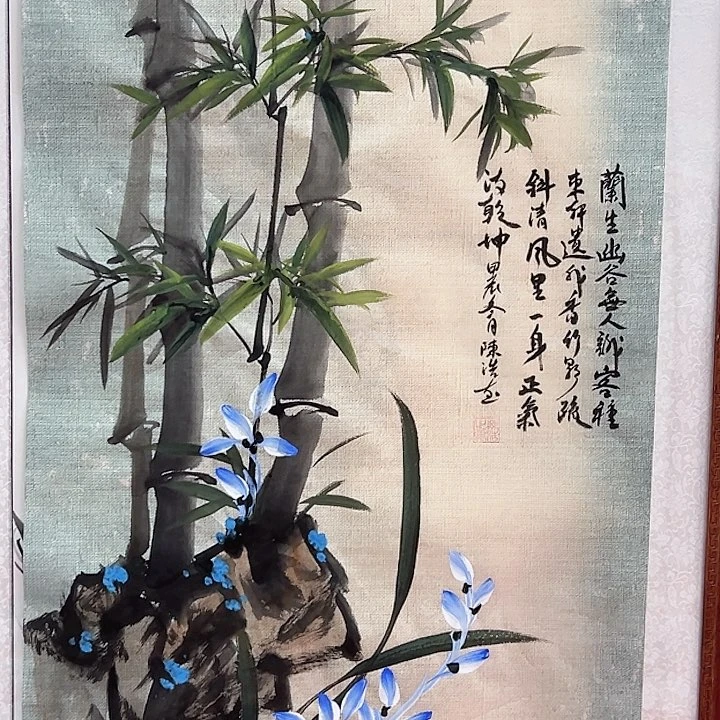 蘭生幽谷無人識客種
東軒遺我香竹影疏
斜清風里一身正氣
沁乾坤 甲辰冬月陳浩画